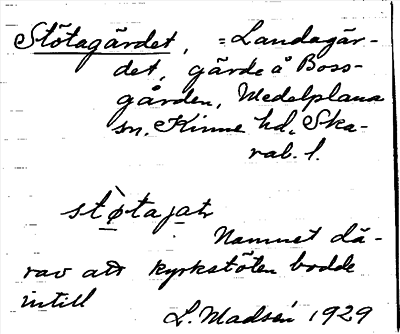 Stötagärdet, = Landagär-
det, gärde å Boss-
gården, Medelplana
sn. Kinne hd. Ska-
rab. l.
stø̀tajaṭ
Namnet dä-
rav att kyrkstöten bodde
intill
L. Madsén 1929